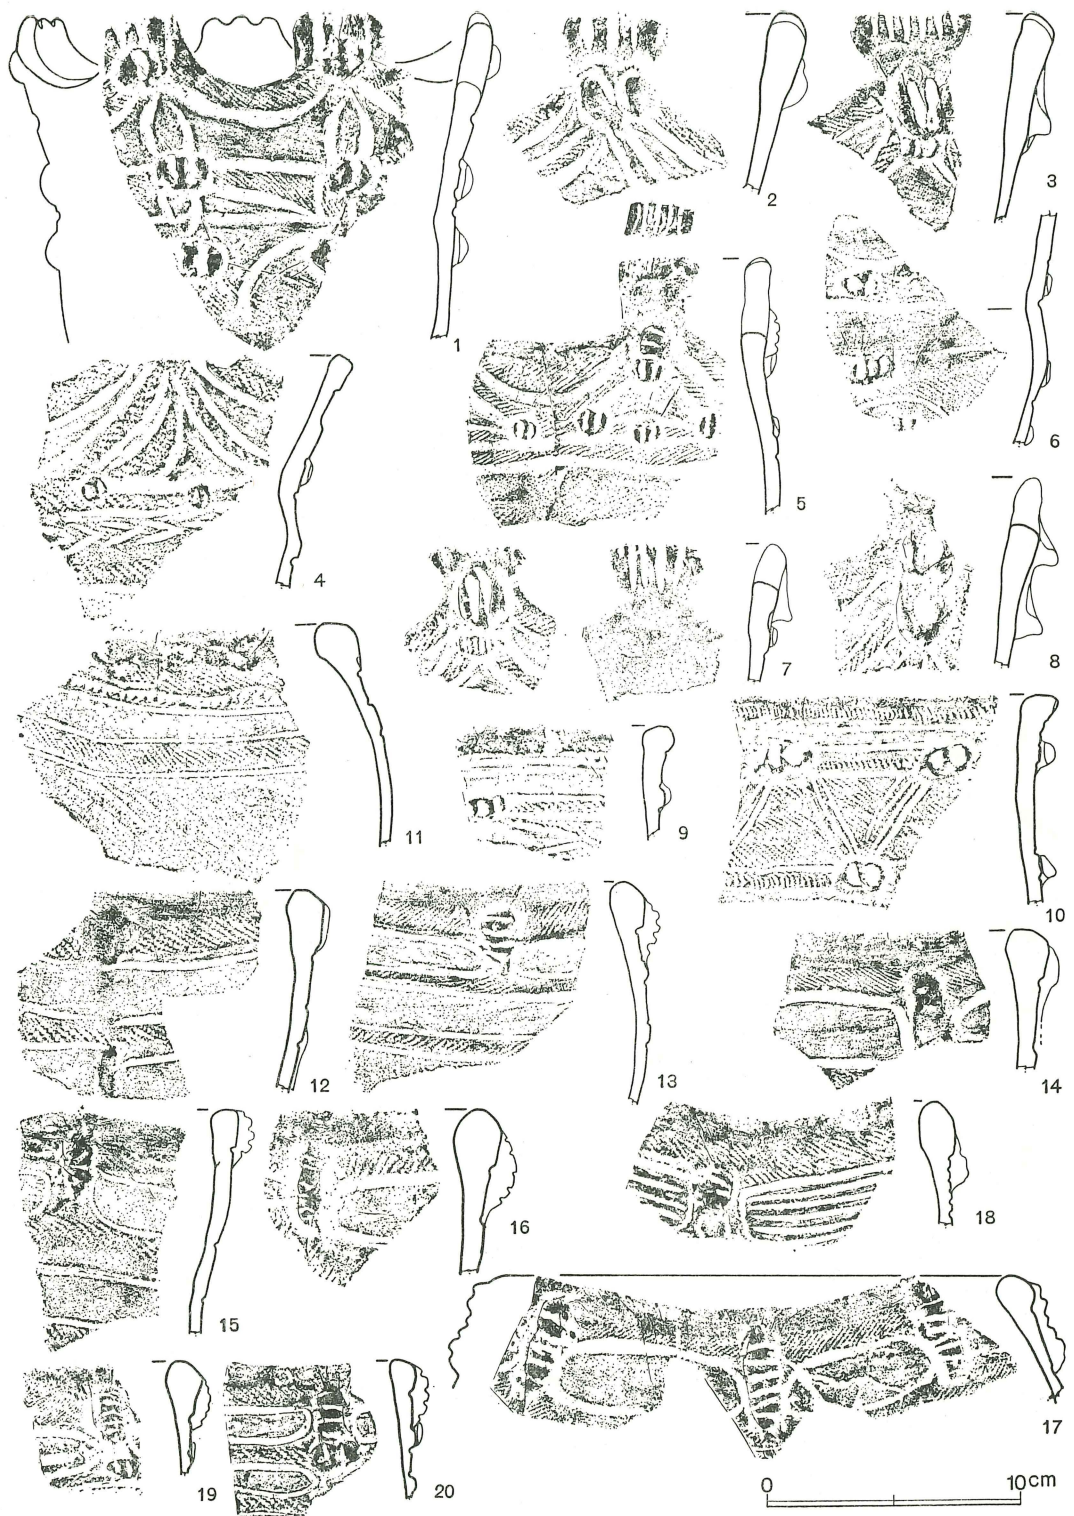 1
2
3
4
5
6
7
8
9
10
11
12
13
14
15
16
17
18
19
20
0 10cm